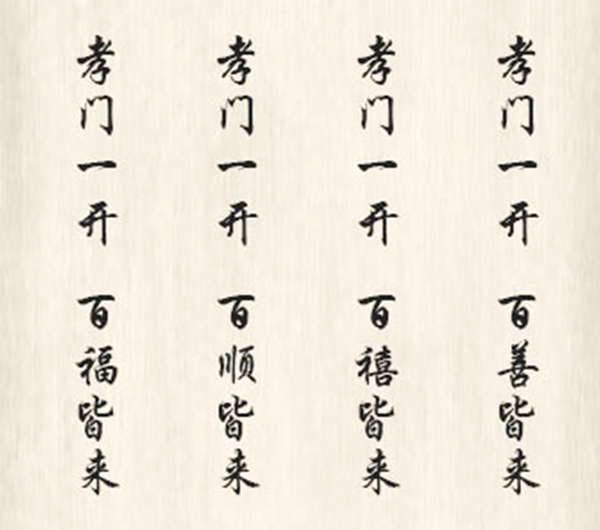 孝门一开 百福皆来
孝门一开 百顺皆来
孝门一开 百禧皆来
孝门一开 百善皆来